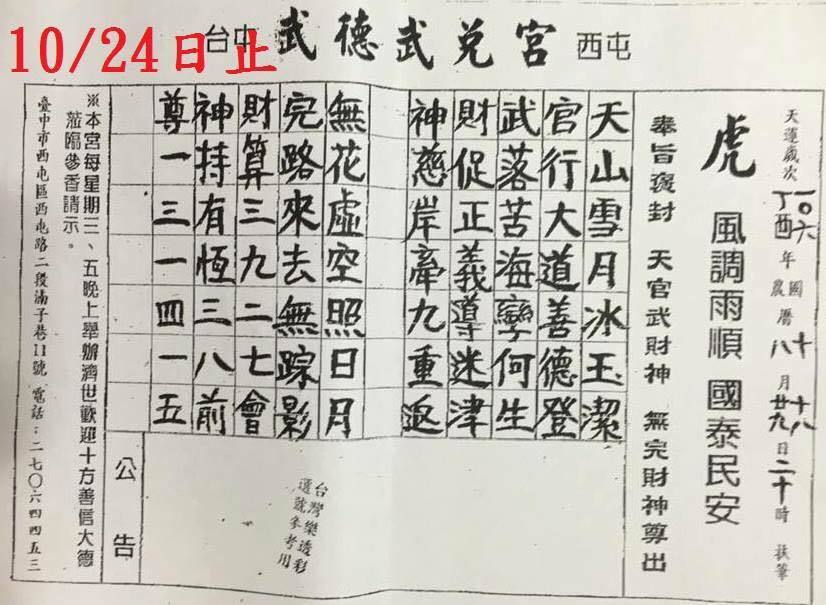 10/24日止
台中 武德武兌宮 西屯
天運歲次 一〇六 丁酉 年 國農曆 十八 月 十八 廿九 日 二十時 扶筆
虎 風調雨順 國泰民安
奉旨褒封 天官武財神 無完財神尊出
天山雪月冰玉潔
官行大道善德登
武落苦海孽何生
財促正義導迷津
神慈岸牽九重返
無花虛空照日月
完路來去無踪影
財算三九二七會
神持有恆三八前
尊一三一四一五
台灣樂透彩
選號參考用
公告
※本宮每星期三、五晚上舉辦濟世歡迎十方善信大德
蒞臨參香請示。
臺中市西屯區西屯路二段滿子巷11號 電話：二七〇六四四五三